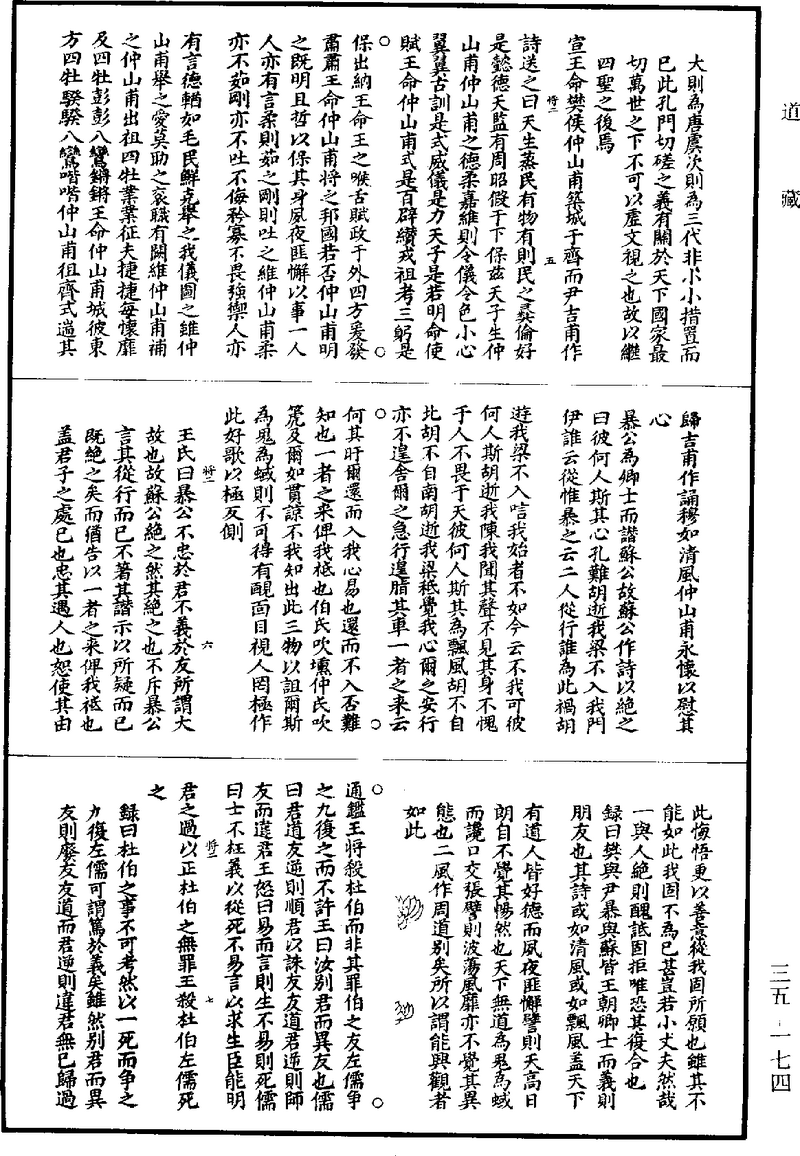 道藏
大則為唐虞次則為三代非小小措置而
已此孔門切磋之義有關於天下國家最
切萬世之下不可以虛文視之也故以繼
四聖之後焉
宣王命樊侯仲山甫築城于齊而尹吉甫作
詩送之曰天生蒸民有物有則民之彝倫好
是懿德天監有周昭假于下保茲天子生仲
山甫仲山甫之德柔嘉維則令儀令色小心
翼翼古訓是式威儀是力天子是若明命使
賦王命仲山甫式是百辟纘戎祖考三躬是
保出納王命王之喉舌賦政于外四方爰發
肅肅王命仲山甫將之邦國若否仲山甫明
之既明且哲以保其身夙夜匪懈以事一人
人亦有言柔則茹之剛則吐之維仲山甫柔
亦不茹剛亦不吐不侮矜寡不畏強禦人亦
有言德輶如毛民鮮克舉之我儀圖之維仲
山甫舉之愛莫助之袞職有闕維仲山甫補
之仲山甫出祖四牡業業征夫捷捷每懷靡
及四牡彭彭八鸞鏘鏘王命仲山甫城彼東
方四牡騤騤八鸞喈喈仲山甫徂齊式遄其
歸吉甫作誦穆如清風仲山甫永懷以慰其
心
暴公為卿士而譖蘇公故蘇公作詩以絕之
曰彼何人斯其心孔難胡逝我梁不入我門
伊誰云從惟暴之云二人從行誰為此禍胡
逝我梁不入唁我始者不如今云不我可彼
何人斯胡逝我陳我聞其聲不見其身不愧
于人不畏于天彼何人斯其為飄風胡不自
北胡不自南胡逝我梁秪覺我心爾之安行
亦不遑舍爾之急行遑脂其車一者之來云
何其旴爾還而入我心易也還而不入否難
知也一者之來俾我祇也伯氏吹壎仲氏吹
篪及爾如貫諒不我知出此三物以詛爾斯
為鬼為蜮則不可得有靦面目視人罔極作
此好歌以極反側
王氏曰暴公不忠於君不義於友所謂大
故也故蘇公絕之然其絕之也不斥暴公
言其從行而已不著其譖示以所疑而已
既絕之矣而猶告以一者之來俾我祗也
蓋君子之處已也忠其遇人也恕使其由
此悔悟更以善意從我固所願也雖其不
能如此我固不為已甚豈若小丈夫然哉
一與人絕則醜詆固拒唯恐其復合也
録曰樊與尹暴與蘇皆王朝卿士而義則
朋友也其詩或如清風或如飄風蓋天下
有道人皆好德而夙夜匪懈譬則天高日
朗自不覺其暢然也天下無道為鬼為蜮
而讒口交張譬則波蕩風靡亦不覺其異
態也二風作周道别矣所以謂能興觀者
如此
通鑑王將殺杜伯而非其罪伯之友左儒爭
之九復之而不許王曰汝别君而異友也儒
曰君道友逆則順君以誅友友道君逆則師
友而違君王怒曰易而言則生不易則死儒
曰士不枉義以從死不易言以求生臣能明
君之過以正杜伯之無罪王殺杜伯左儒死
之
録曰杜伯之事不可考然以一死而爭之
力復左儒可謂篤於義矣雖然别君而異
友則廢友友道而君逆則違君無已歸過
将二
五
将二
六
将二
七
三五-一七四